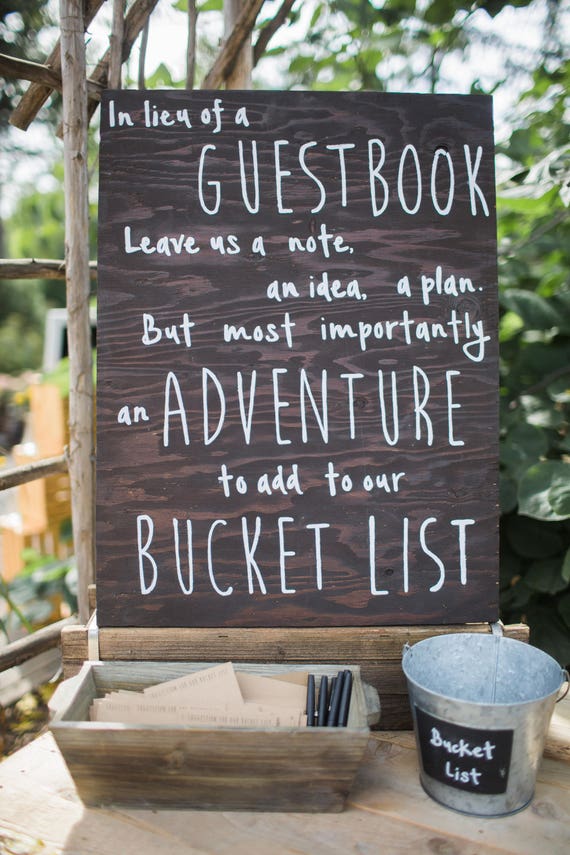 In lieu of a
GUESTBOOK
Leave us a note,
an idea, a plan.
But most importantly
an ADVENTURE
to add to our
BUCKET LIST
Bucket
List